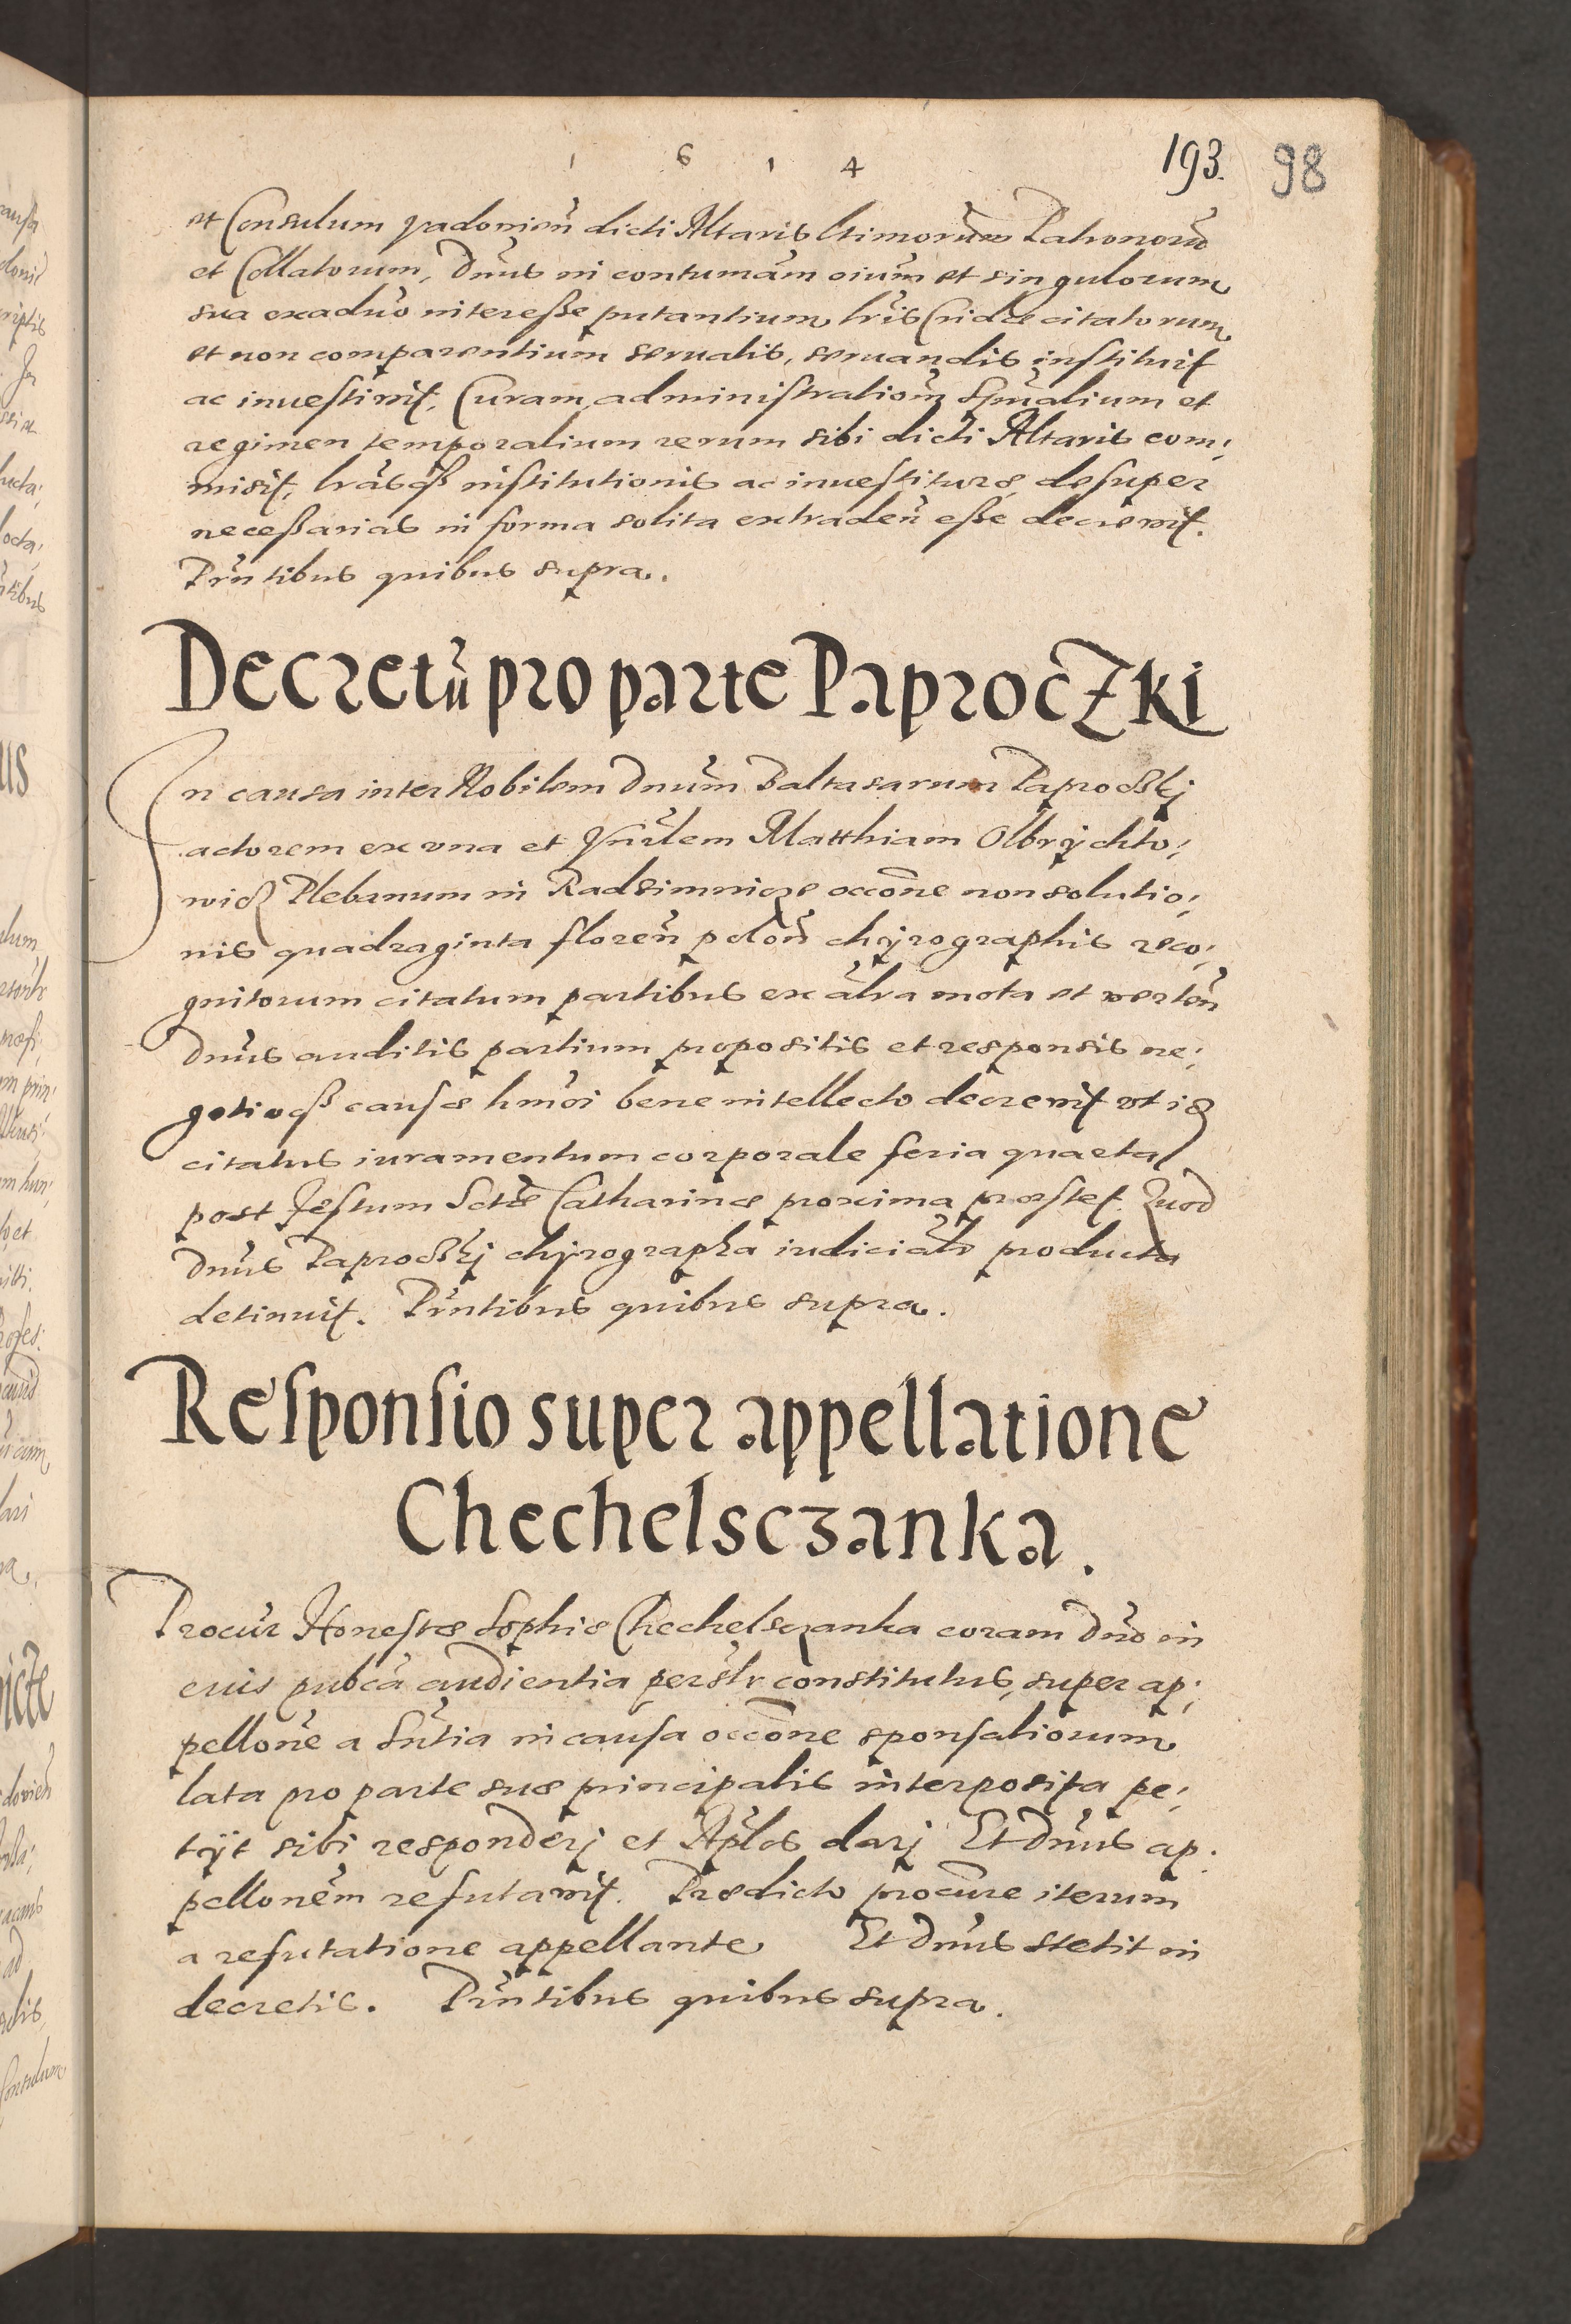 1 6 1 4
193. 98
et Consulum Vadovien̄ dicti Altaris l̃timorum̃ Patronorũ
et Collatorum, Dnũs in contumãm oiũm et singulorum
sua exadũo interesse putantium l̃ris Cridæ citatorum
et non comparentium servatis, servandis instituit
ac investivit. Curam administratioñm Spũalium et
regimen temporalium rerum sibi dicti Altaris com:
misit, l̃rasq̃ institutionis ac investituræ desuper
necessarias in forma solita extraden̄ esse decrevit.
Pñtibus quibus supra.
Decretũ pro parte Paproczki
In causa inter Nobilem Dnũm Baltasarum Paproczkj
actorem ex una et Vñrlem Matthiam Olbrychto:
wicz Plebanum in Radzimnicze occõne non solutio:
nis quadraginta floren̄ polon̄ chyrographis reco:
gnitorum citatum partibus ex al̃ra mota et verten̄
Dnũs auditis partium propositis et responsis ne:
gotioq̃ causæ hm̃oi bene intellecto decrevit ut is
citatus iuramentum corporale feria quarta
post Festum Sctæ̃ Catharinæ proxima præstet. Quod
Dnũs Paproczkj chyrographa iudicialr̃ producta
detinuit. Pñtibus quibus supra.
Responsio super appellatione
Chechelsczanka.
Procũr Honestæ Sophiæ Chechelsczanka coram Dnõ in
eius pubcã audientia persl̃r constitutus, super ap:
pellõne a Sñtia in causa occõne sponsaliorum
lata pro parte suæ principalis interposita pe:
tyt sibi responderj et Ap̃los darj Et Dnũs ap:
pellonẽm refutavit. Prædicto procũre iterum
a refutatione appellante Et Dnũs stetit in
decretis. Pñtibus quibus supra.